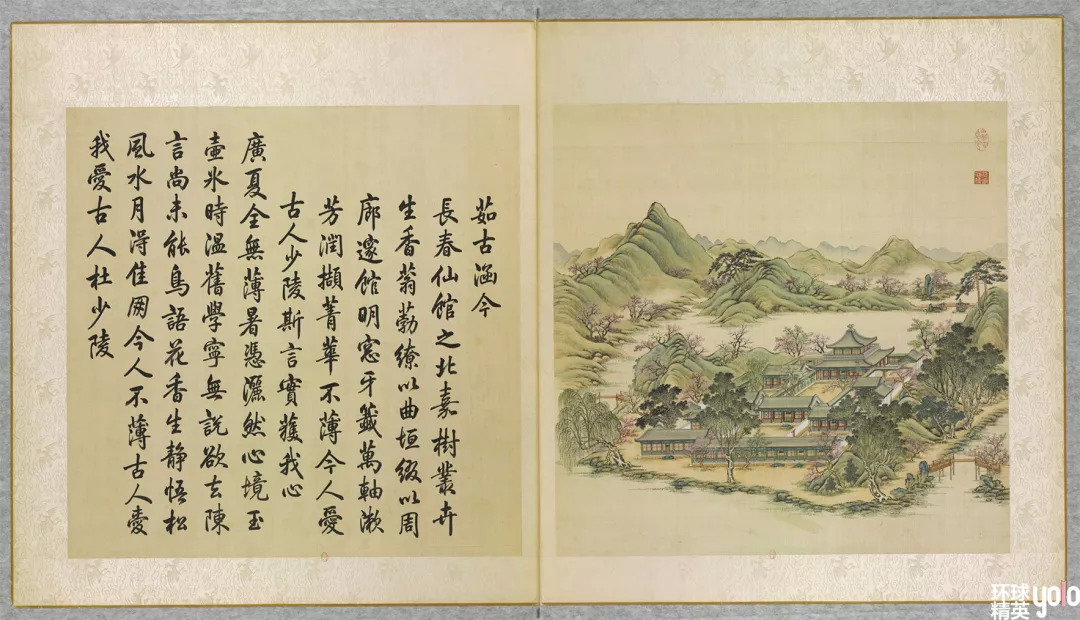 茹古涵今
長春仙館之北嘉樹叢卉
生香蓊葧繚以曲垣綴以周
廊邃館明窓牙籤萬軸漱
芳潤擷菁華不薄今人愛
古人少陵斯言實獲我心
廣夏全無薄暑憑灑然心境玉
壺氷時溫舊學寧無說欲去陳
言尚未能鳥語花香生靜悟松
風水月淂佳朋今人不薄古人愛
我愛古人杜少陵
环球
精英
yolo